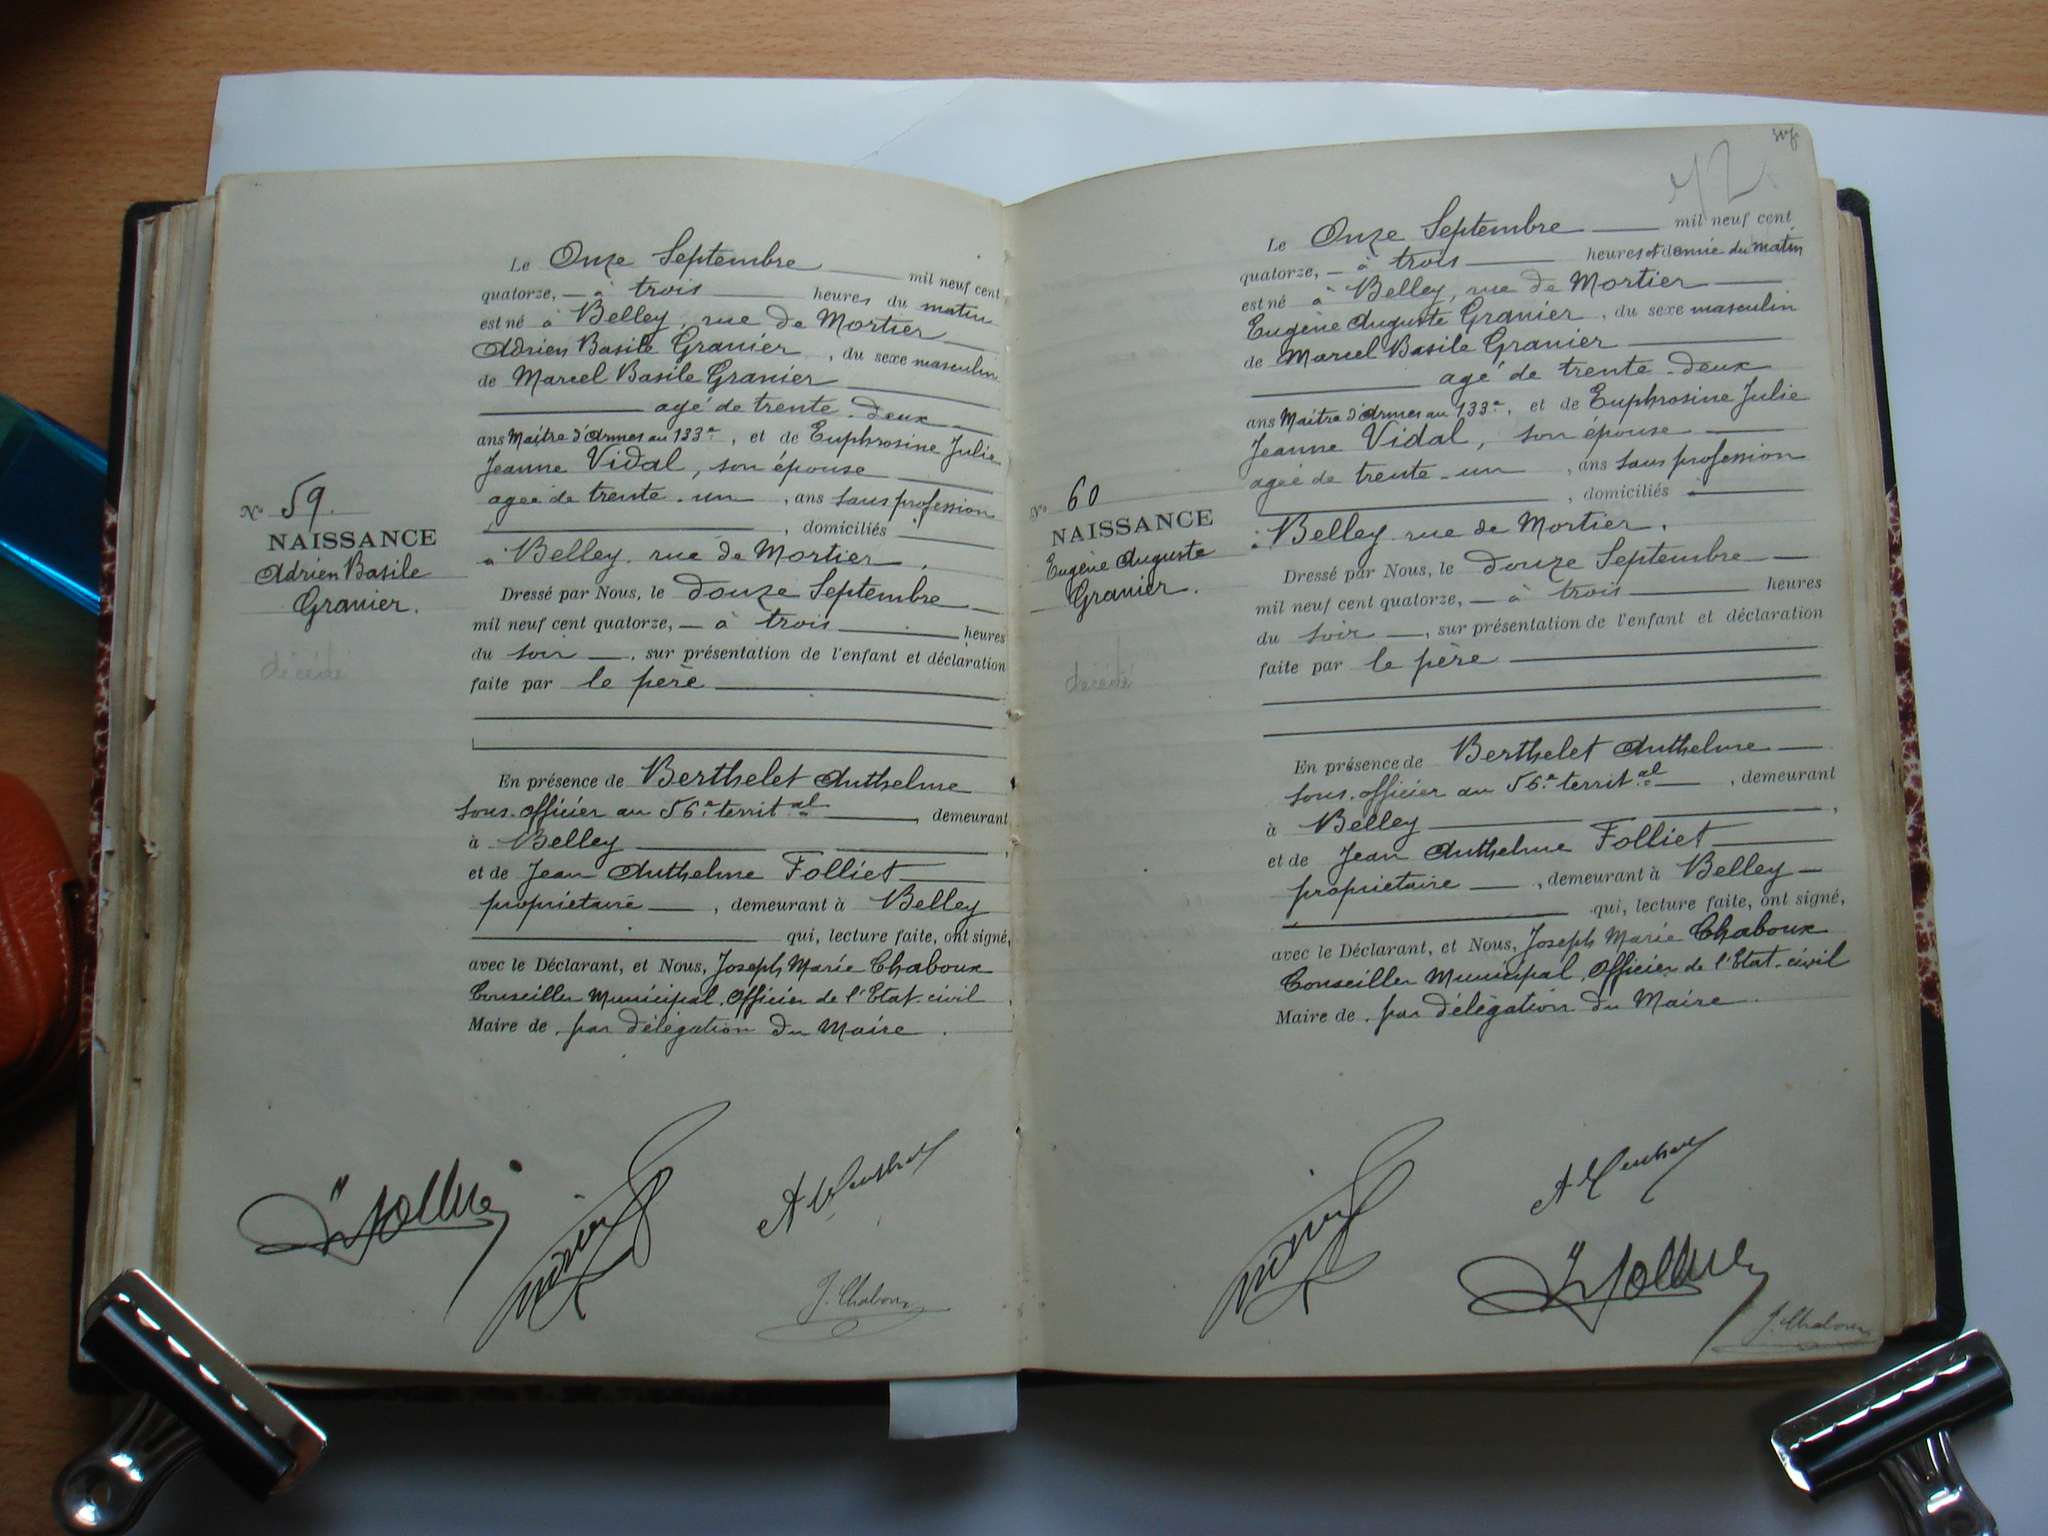 Le Onze Septembre mil neuf cent
quatorze, à trois heures du matin
est né à Belley, rue de Mortier
Adrien Basile Granier, du sexe masculin
de Marcel Basile Granier
agé de trente-deux
ans Maître d'Armes au 133e, et de Euphrosine Julie
Jeanne Vidal, son épouse
agée de trente-un, ans sans profession
, domiciliés
à Belley, rue de Mortier.
No 59.
NAISSANCE
Adrien Basile
Granier.
décédé
Dressé par Nous, le douze Septembre
mil neuf cent quatorze, à trois heures
du soir, sur présentation de l'enfant et déclaration
faite par le père
En présence de Berthelet Anthelme
sous-officier au 56e territal, demeurant
à Belley,
et de Jean Anthelme Folliet
propriétaire, demeurant à Belley
qui, lecture faite, ont signé,
avec le Déclarant, et Nous, Joseph Marie Chaboux
Conseiller Municipal, Officier de l'Etat-civil
Maire de par délégation du Maire.
J. Chaboux
72
Le Onze Septembre mil neuf cent
quatorze, à trois heures et demie du matin
est né à Belley, rue de Mortier
Eugène Auguste Granier, du sexe masculin
de Marcel Basile Granier
agé de trente-deux
ans Maître d'Armes au 133e, et de Euphrosine Julie
Jeanne Vidal, son épouse
agée de trente-un, ans sans profession
, domiciliés
à Belley rue de Mortier.
No 60
NAISSANCE
Eugène Auguste
Granier.
décédé
Dressé par Nous, le douze Septembre
mil neuf cent quatorze, à trois heures
du soir, sur présentation de l'enfant et déclaration
faite par le père
En présence de Berthelet Anthelme
sous-officier au 56e territal, demeurant
à Belley,
et de Jean Anthelme Folliet
propriétaire, demeurant à Belley
qui, lecture faite, ont signé,
avec le Déclarant, et Nous, Joseph Marie Chaboux
Conseiller Municipal, Officier de l'Etat-civil
Maire de par délégation du Maire.
J. Chaboux